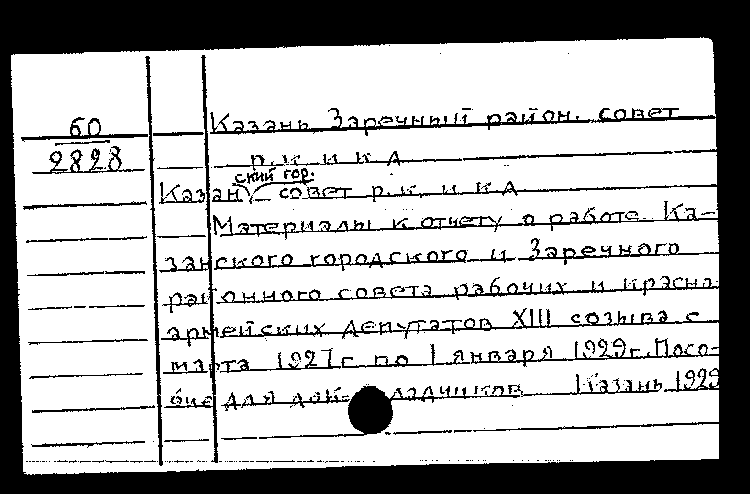 60
2828
Казань Заречный район. совет
р. к и К Д
ский гор.
Казан совет р. к. и К Д
Материалы к отчету о работе Ка-
занского городского и Заречного
районного совета рабочих и красно
армейских депутатов XIII созыва с
марта 1927г по 1 января 1929г. Посо-
бие для док-ладчиков Казань 1929